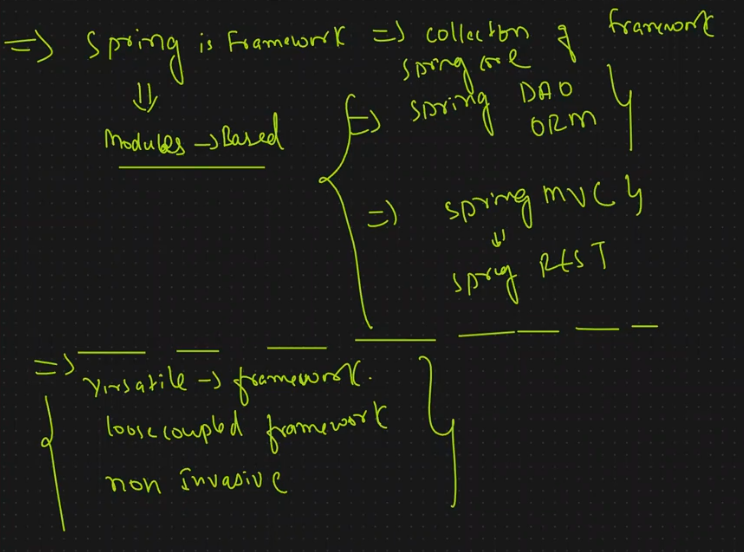 => Spring is Framework => collection of framework
spring core
=> spring DAO
ORM
⇓
Modules → Based
=> spring MVC
⇓
spring REST
=> Virsatile → framework.
loose coupled framework
non Invasive